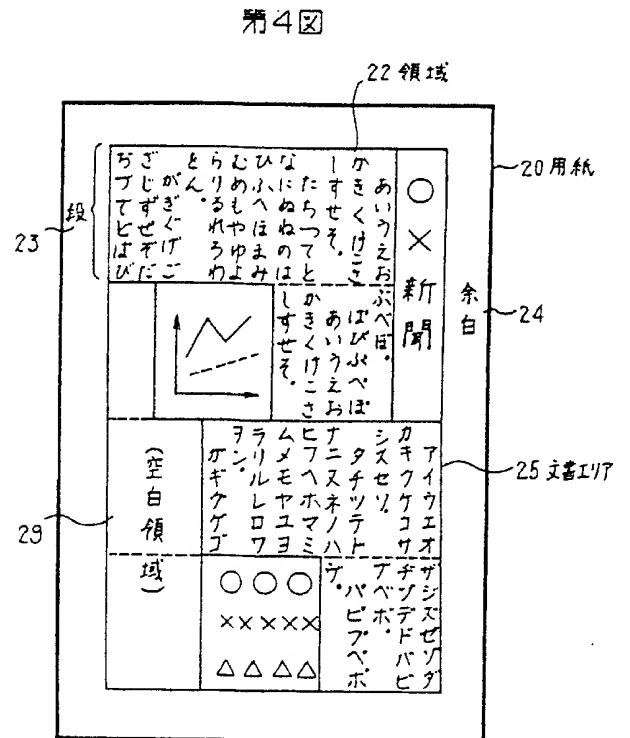 第4図
22 領域
20 用紙
余白
24
23
段
○×新聞
あいうえお
かきくけこさ
しすせそ。
たちつてと
なにぬねのは
ひふへほまみ
むめもやゆよ
らりるれろわ
をん。
がぎぐげご
ざじずぜぞだ
ぢづでどばび
ぶべぼ。
ぱぴぷぺぽ
あいうえお
かきくけこさ
しすせそ。
25 文書エリア
アイウエオ
カキクケコサ
シスセソ。
タチツテト
ナニヌネノハ
ヒフヘホマミ
ムメモヤユヨ
ラリルレロワ
ヲン。
ガギグゲゴ
ザジズゼゾダ
ヂヅデドバビ
ブベボ。
パピプペポ
ヴ。
○○○
×××××
△△△△
(空白領域)
29